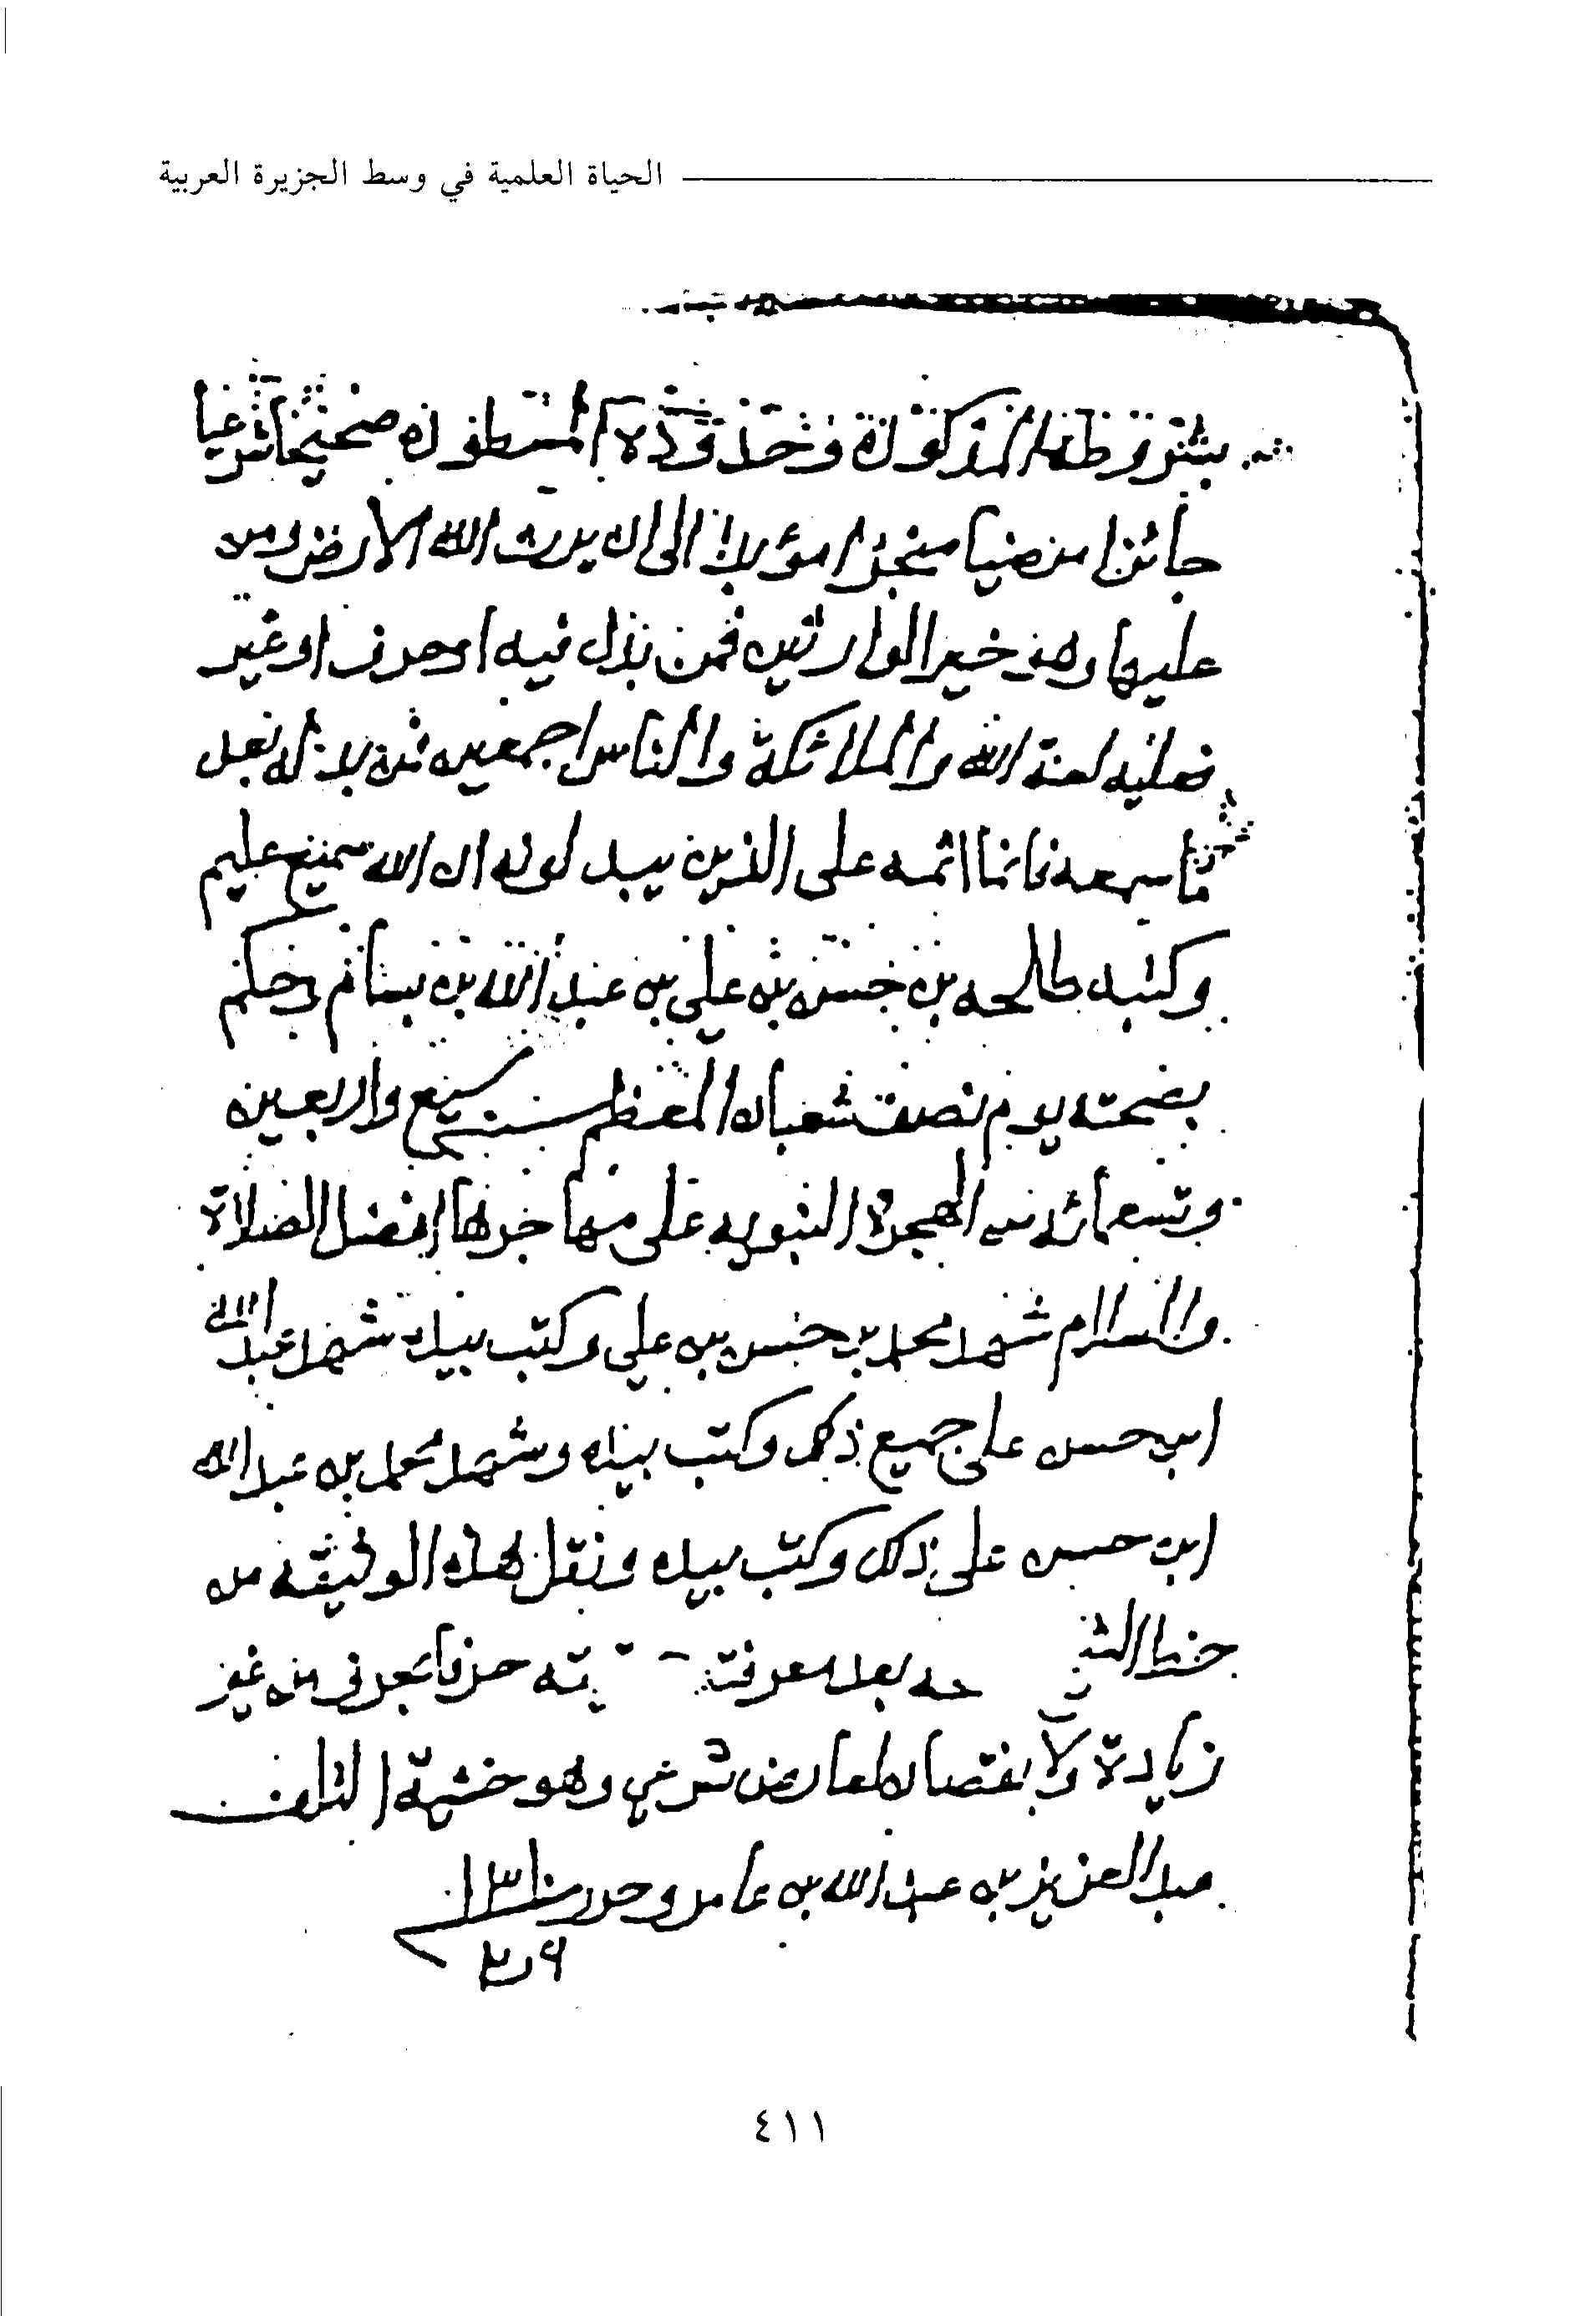 الحياة العلمية في وسط الجزيرة العربية
بشروطها المذكورة وحدوده المسطوره صحيحا شرعيا
جائزا مرضيا منجزا مؤبدا الى ان يرث الله الارض ومن
عليها وهو خير الوارثين فمن بدل فيه او حرف او غير
فعليه لعنة الله والملائكة والناس اجمعين فمن بدله بعد
ما سمعه فانما اثمه على الذين يبدلونه ان الله سميع عليم
وكتبه طلحه بن حسن بن علي بن عبد الله بن بسام وحكم
بصحته يوم نصف شعبان المعظم سنة واربعين
وتسعمائه من الهجرة النبويه على مهاجرها افضل الصلاة
والسلام شهد محمد بن حسن بن علي وكتب بيده شهد عبد الله
ابن حسن على جميع ذلك وكتب بيده وشهد محمد بن عبد الله
ابن حسن على ذلك وكتب بيده ونقل هذه الوثيقه من
خط بعد معرفته حرفا بحرف من غير
زيادة ولا نقصان لمعارض شرعي وهو خشية التلف
عبد العزيز بن عبد الله بن عامر وحرر
٤١١